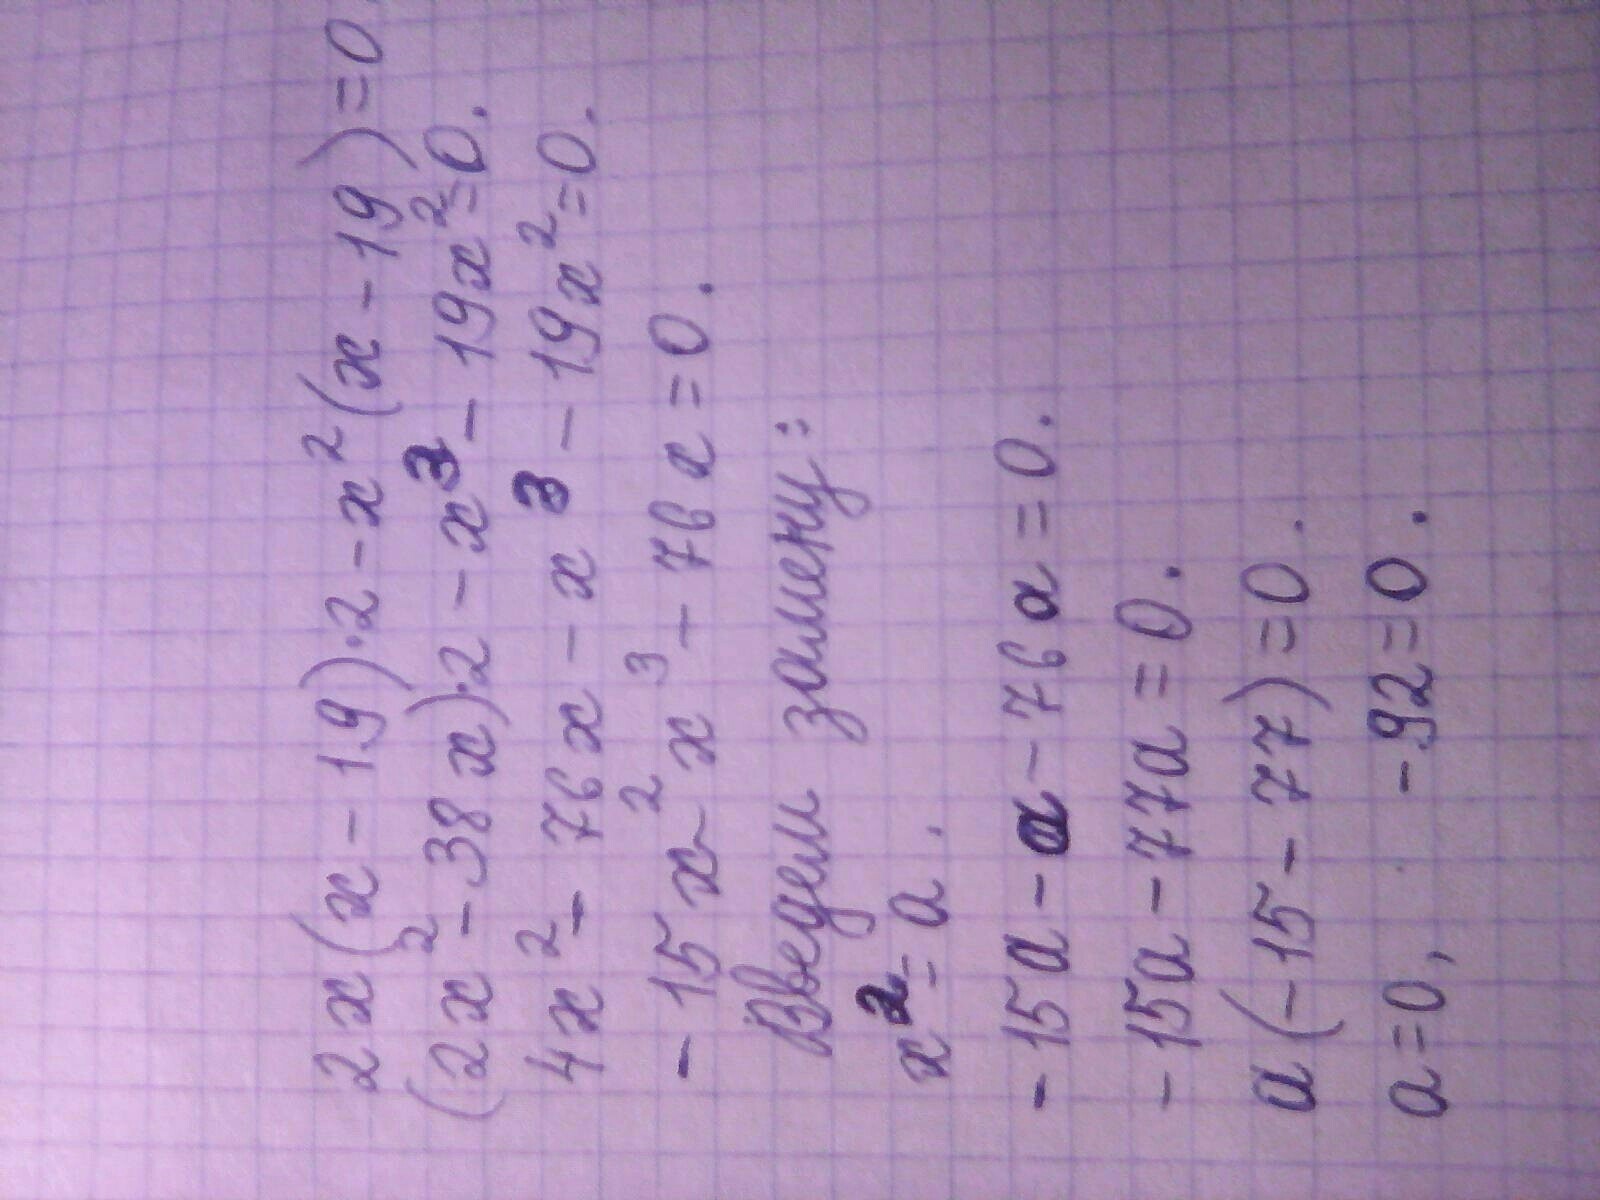 2x(x-19)·2-x²(x-19)=0
(2x²-38x)·2-x³-19x²=0.
4x²-76x-x³-19x²=0.
-15x²-x³-76x=0.
Введем замену:
x²=a.
-15a-a-76a=0.
-15a-77a=0.
a(-15-77)=0.
a=0, -92=0.